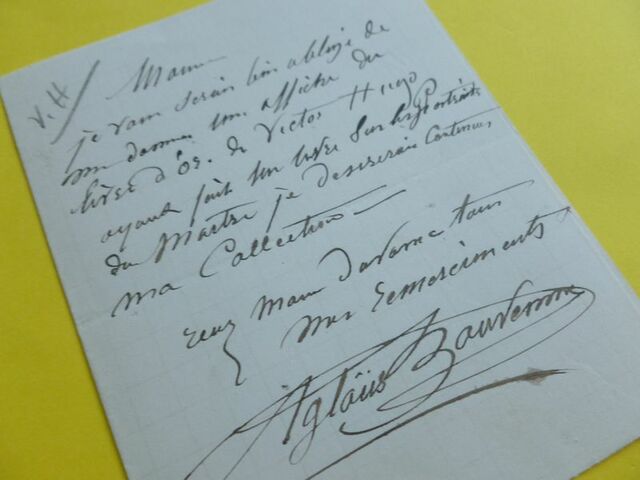 V. H/
Monsieur
je vous serais bien obligé de
me donner une affiche du
livre d'or de Victor Hugo
ayant fait un livre sur les Portraits
du Maitre je desirerais Continuer
ma Collection
Mon d'avance tous
mes remerciments
Aglaüs Bouvenne